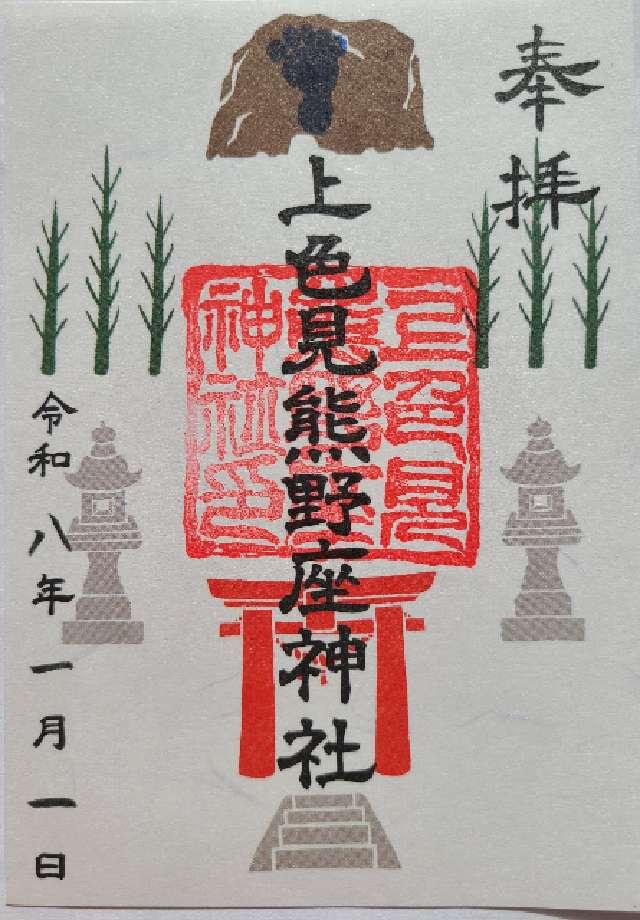 奉拝
上色見熊野座神社
上色見
熊野座
神社印
令和八年一月一日